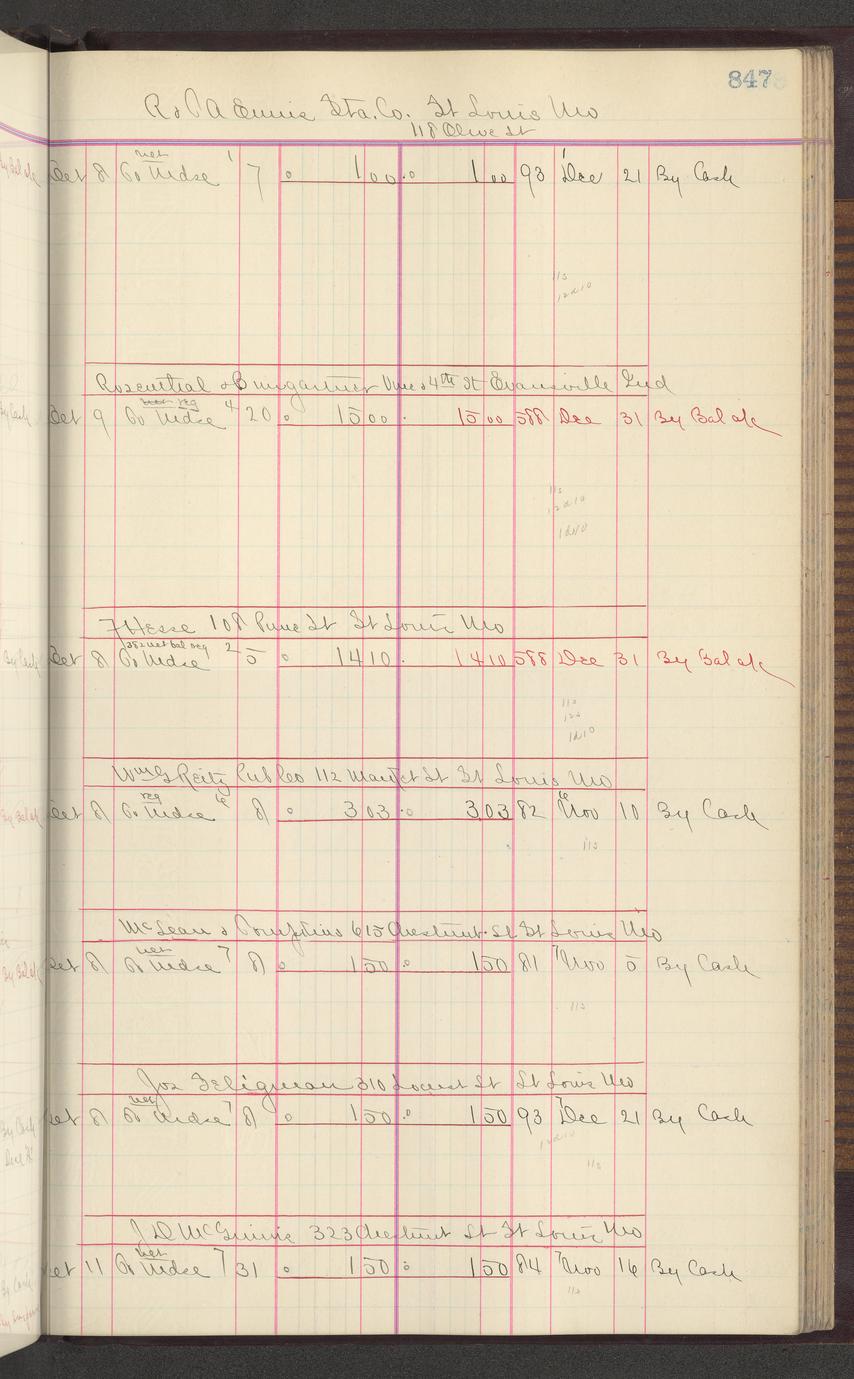 847
R & A Ennis Sta. Co. St Louis Mo
118 Olive St
Oct 8 To Mdse net 1 7 1 00 1 00 93 1 Dec 21 By Cash
11s
12d10
Rosenthal & Bumgartner Vine & 4th St Evansville Ind
Oct 9 To Mdse reg 4 20 15 00 15 00 588 Dec 31 By Bal a/c
11s
12d10
1d10
F Hesse 108 Pine St St Louis Mo
Oct 8 To Mdse net bal reg 2 5 14 10 14 10 588 Dec 31 By Bal a/c
11s
12s
1d10
Wm G Reitz Pub Co 112 Market St St Louis Mo
Oct 8 To Mdse reg 6 8 3 03 3 03 82 6 Nov 10 By Cash
11s
McLean & Comptins 615 Chestnut St St Louis Mo
Oct 8 To Mdse net 7 8 1 50 1 50 81 7 Nov 5 By Cash
11s
Jos Seligman 310 Locust St St Louis Mo
Oct 8 To Mdse 7 8 1 50 1 50 93 7 Dec 21 By Cash
12d10
11s
J D McGinnis 323 Chestnut St St Louis Mo
Oct 11 To Mdse net 7 31 1 50 1 50 84 7 Nov 16 By Cash
11s